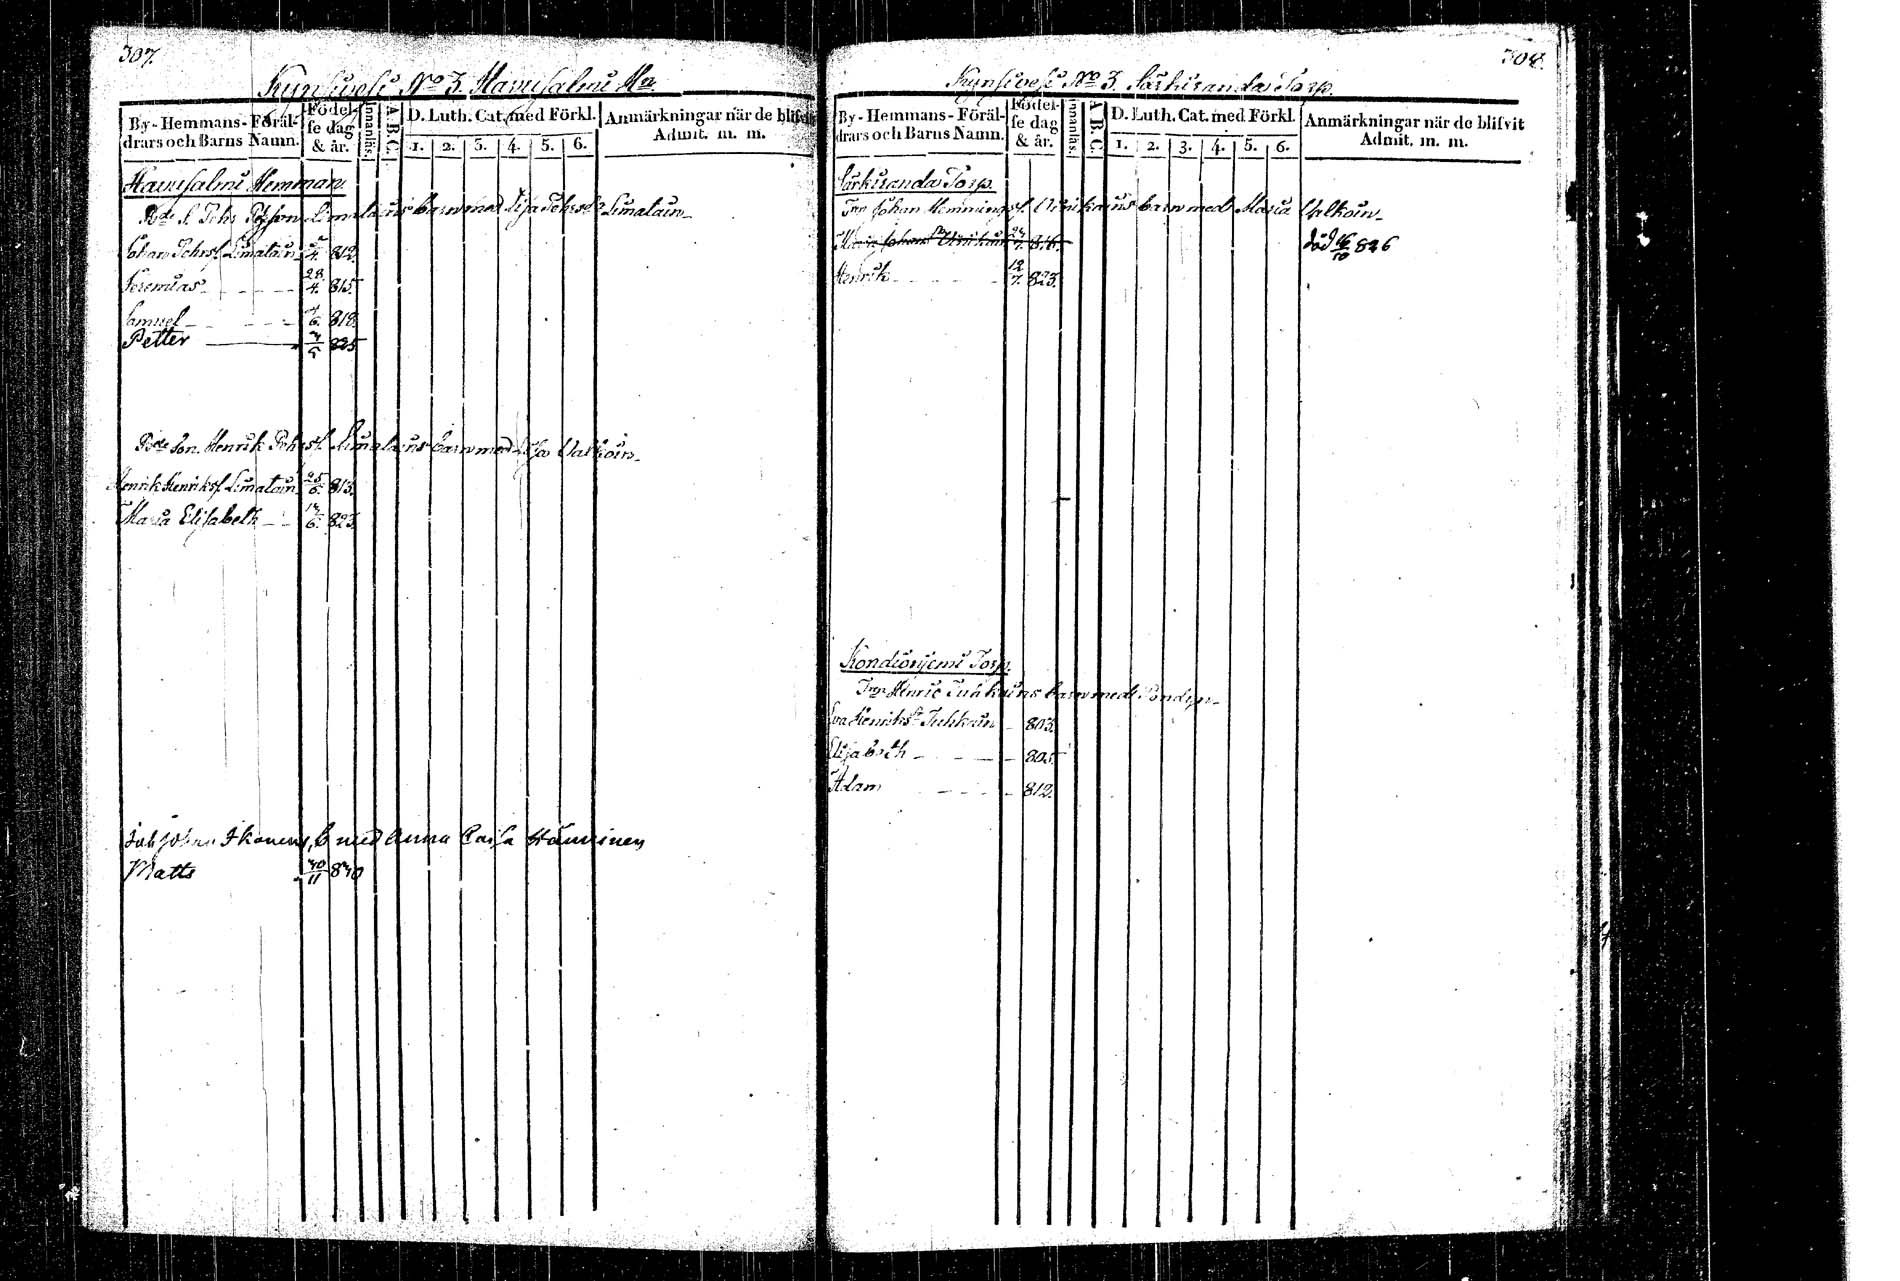 307.
Kynsivesi No 3. Hauvisalmi Hn
By- Hemmans- Föräl- drars och Barns Namn. Födel- se dag & år. Innanläs. A.B.C. D. Luth. Cat. med Förkl. 1. 2. 3. 4. 5. 6. Anmärkningar när de blifvit Admit. m. m.
Hauvisalmi Hemman.
Bde S. Pehr Pehrson Limatains barn med Lisa Pehrsdr Limatain
Johan Pehrss. Limatain 4. 812.
Jeremias 28/4. 815.
Samuel 6. 818.
Petter 825
Bde Son. Henrik Pehrss. Limatains barn med Lisa Valkoin
Henrik Henrikss. Limatain 25/6. 813.
Maria Elisabeth 6. 823.
Inh Johan Ikonens, b med Anna Caisa Hänninen
Matts 30/11 830
308.
Kynsivesi No 3. Särkiranda Torp.
By- Hemmans- Föräl- drars och Barns Namn. Födel- se dag & år. Innanläs. A.B.C. D. Luth. Cat. med Förkl. 1. 2. 3. 4. 5. 6. Anmärkningar när de blifvit Admit. m. m.
Särkiranda Torp.
Trp Johan Hemmingss. barn med Maria
Johans 816. död 16/10 826
Henrik 12/7. 823.
Kondioniemi Torp.
Trp Henric Tuhkains barn med
Eva Henriksdr Tuhkain 803.
Elisabeth 805.
Adam 812.